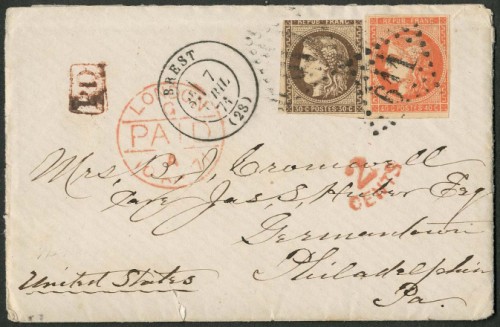 REPUB. FRANC.
30 C POSTES 30 C
REPUB. FRANC.
40 C POSTES 40 C
BREST
7
(28)
P.D.
LONDON
PAID
2
CENTS
Mrs. B. J. Cromwell
Care Jas. S. Huber Esq
Germantown
Philadelphia
Pa.
United States